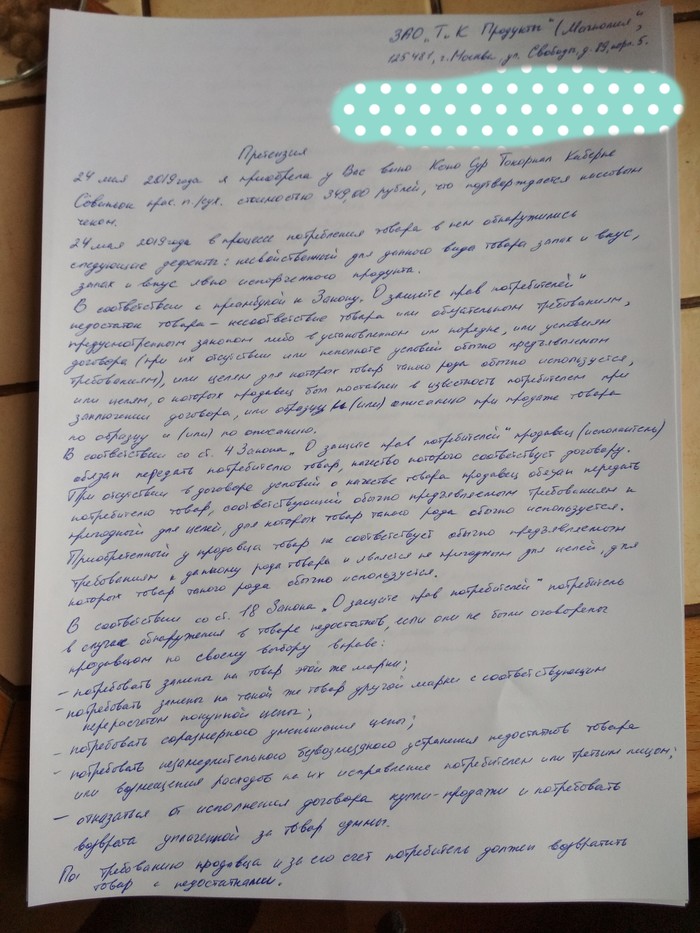 ЗАО „Т и К Продукты" (Магнолия),
125481, г. Москва, ул. Свободы, д. 89, корп. 5.
Претензия
24 мая 2019 года я приобрела у Вас вино Коно Сур Токорнал Каберне
Совиньон крас. п/сух. стоимостью 349,00 рублей, что подтверждается кассовым
чеком.
24 мая 2019 года в процессе потребления товара в нем обнаружились
следующие дефекты: несвойственный для данного вида товара запах и вкус,
запах и вкус явно испорченного продукта.
В соответствии с преамбулой к Закону „О защите прав потребителей"
недостаток товара – несоответствие товара или обязательным требованиям,
предусмотренным законом либо в установленном им порядке, или условиям
договора (при их отсутствии или неполноте условий обычно предъявляемым
требованиям), или целям для которых товар такого рода обычно используется,
или целям, о которых продавец был поставлен в известность потребителем при
заключении договора, или образцу и (или) описанию при продаже товара
по образцу и (или) по описанию.
В соответствии со ст. 4 Закона „О защите прав потребителей" продавец (исполнитель)
обязан передать потребителю товар, качество которого соответствует договору.
При отсутствии в договоре условий о качестве товара продавец обязан передать
потребителю товар, соответствующий обычно предъявляемым требованиям и
пригодной для целей, для которых товар такого рода обычно используется.
Приобретенный у продавца товар не соответствует обычно предъявляемым
требованиям к данному рода товара и является не пригодным для целей, для
которых товар такого рода обычно используется.
В соответствии со ст. 18 Закона „О защите прав потребителей" потребитель
в случае обнаружения в товаре недостатков, если они не были оговорены
продавцом по своему выбору вправе:
– потребовать замены на товар этой же марки;
– потребовать замены на такой же товар другой марки с соответствующим
перерасчетом покупной цены;
– потребовать соразмерного уменьшения цены;
– потребовать незамедлительного безвозмездного устранения недостатков товара
или возмещения расходов на их исправление потребителем или третьим лицом;
– отказаться от исполнения договора купли-продажи и потребовать
возврата уплаченной за товар суммы.
По требованию продавца и за его счет потребитель должен возвратить
товар с недостатками.